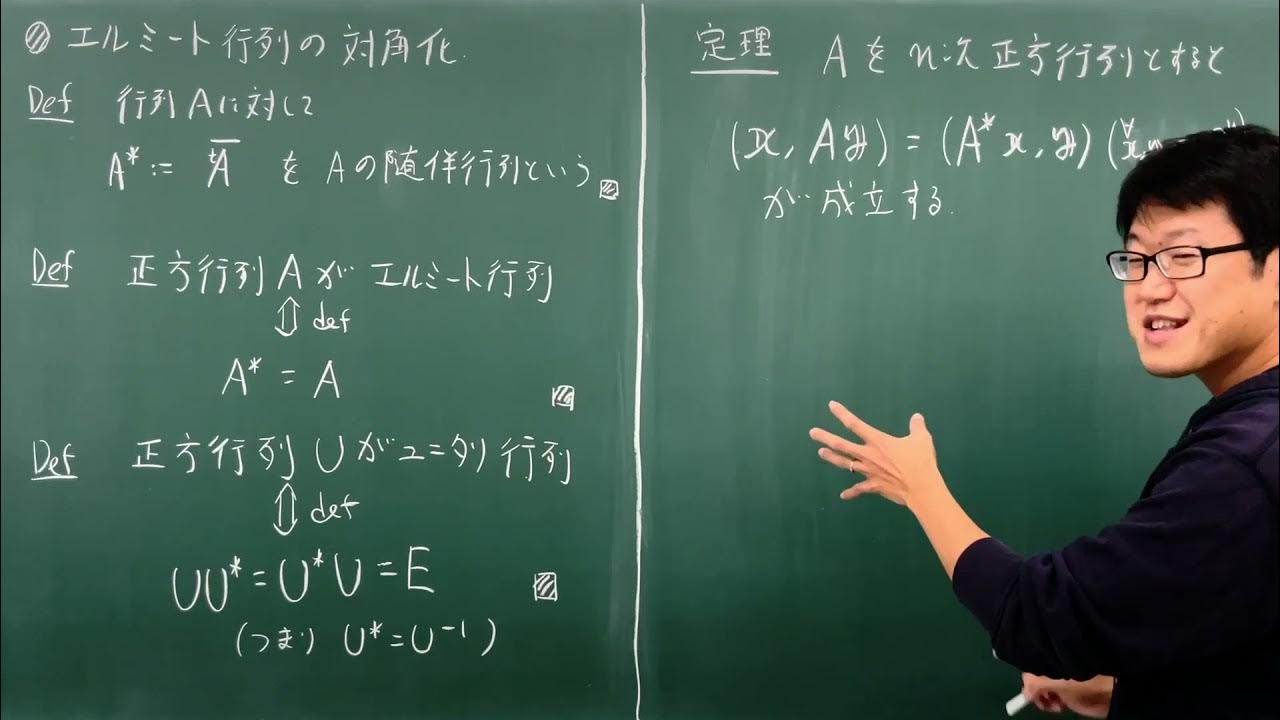 エルミート行列の対角化.
Def 行列Aに対して
A* := ᵗA̅ を Aの随伴行列という
Def 正方行列 A が エルミート行列
⇕ def
A* = A
Def 正方行列 U が ユニタリ 行列
⇕ def
UU* = U*U = E
(つまり U* = U⁻¹)
定理 A を n次 正方行列とすると
(x, Ay) = (A*x, y) (∀x,
が 成立する.